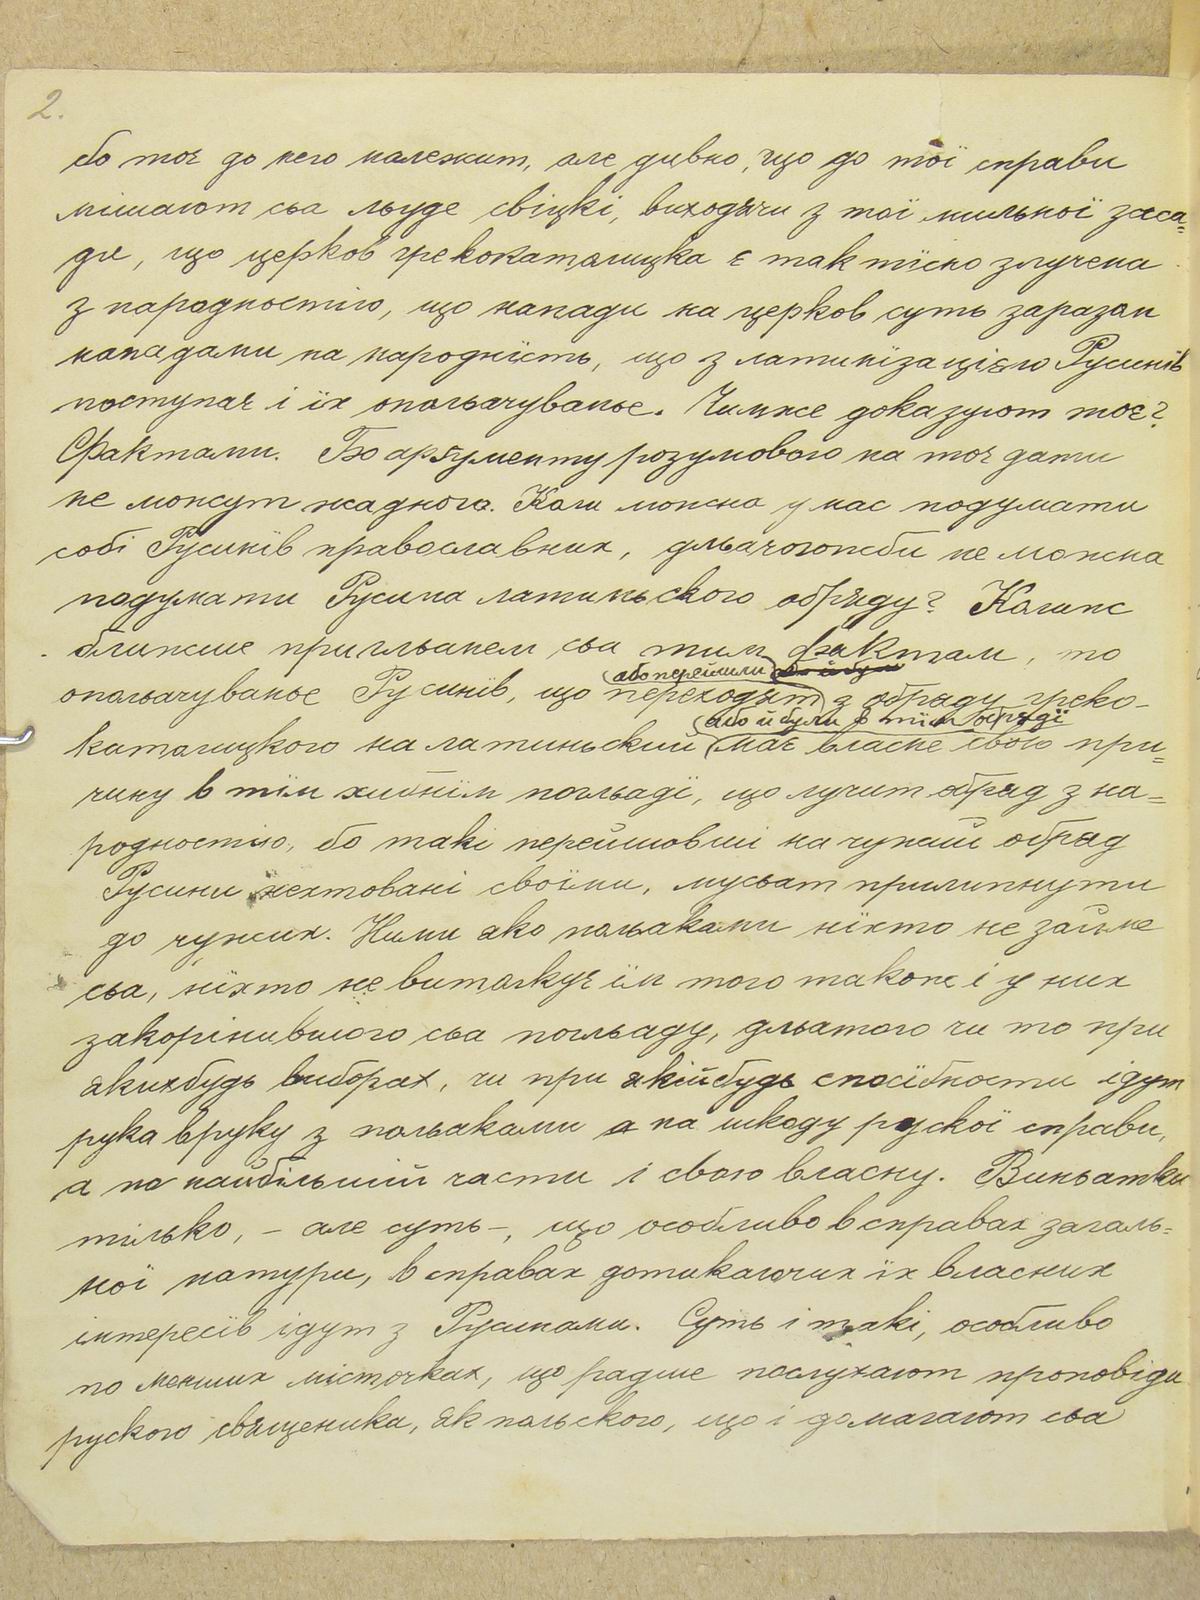 2.
бо тоє до него належит, але дивно, що до тої справи
мішают сьа льуде свіцкі, виходьачи з тої мильної заса=
ди, що церков грекокатолицка є так тісно злучена
з народностію, що напади на церков суть заразом
нападами на народність, що з латинїзацією Русинів
поступає і їх опольачуваньє. Чимже доказуют тоє?
Фактами. Бо арґументу розумового на тоє дати
не можут жадного. Коли можна у нас подумати
собі Русинів православних, дльачогожби не можна
подумати Русина латиньского обряду? Колиж
ближше пригльанем сьа тим фактам, то
опольачуваньє Русинів, що переходят з обряду греко-
або перейшли
католицкого на латиньский має власне свою при=
або й були в тїм обрядї
чину в тїм хибнїм погльадї, що лучит обряд з на=
родностію, бо такі перейшовші на чужий обряд
Русини нехтовані своїми, мусьат прилипнути
до чужих. Ними яко польаками нїхто не займе
сьа, нїхто не витолкує їм того також і у них
закорінившого сьа погльаду, дльатого чи то при
якихбудь виборах, чи при якійбудь спосібности ідут
рука в руку з польаками а на шкоду рускої справи,
а по найбільшій части і свою власну. Виньатки
тілько, – але суть –, що особливо в справах загаль=
ної натури, в справах дотикаючих їх власних
інтересів ідут з Русинами. Суть і такі, особливо
по менших місточках, що радше послухают проповіди
руского священика, як польского, що і домагают сьа